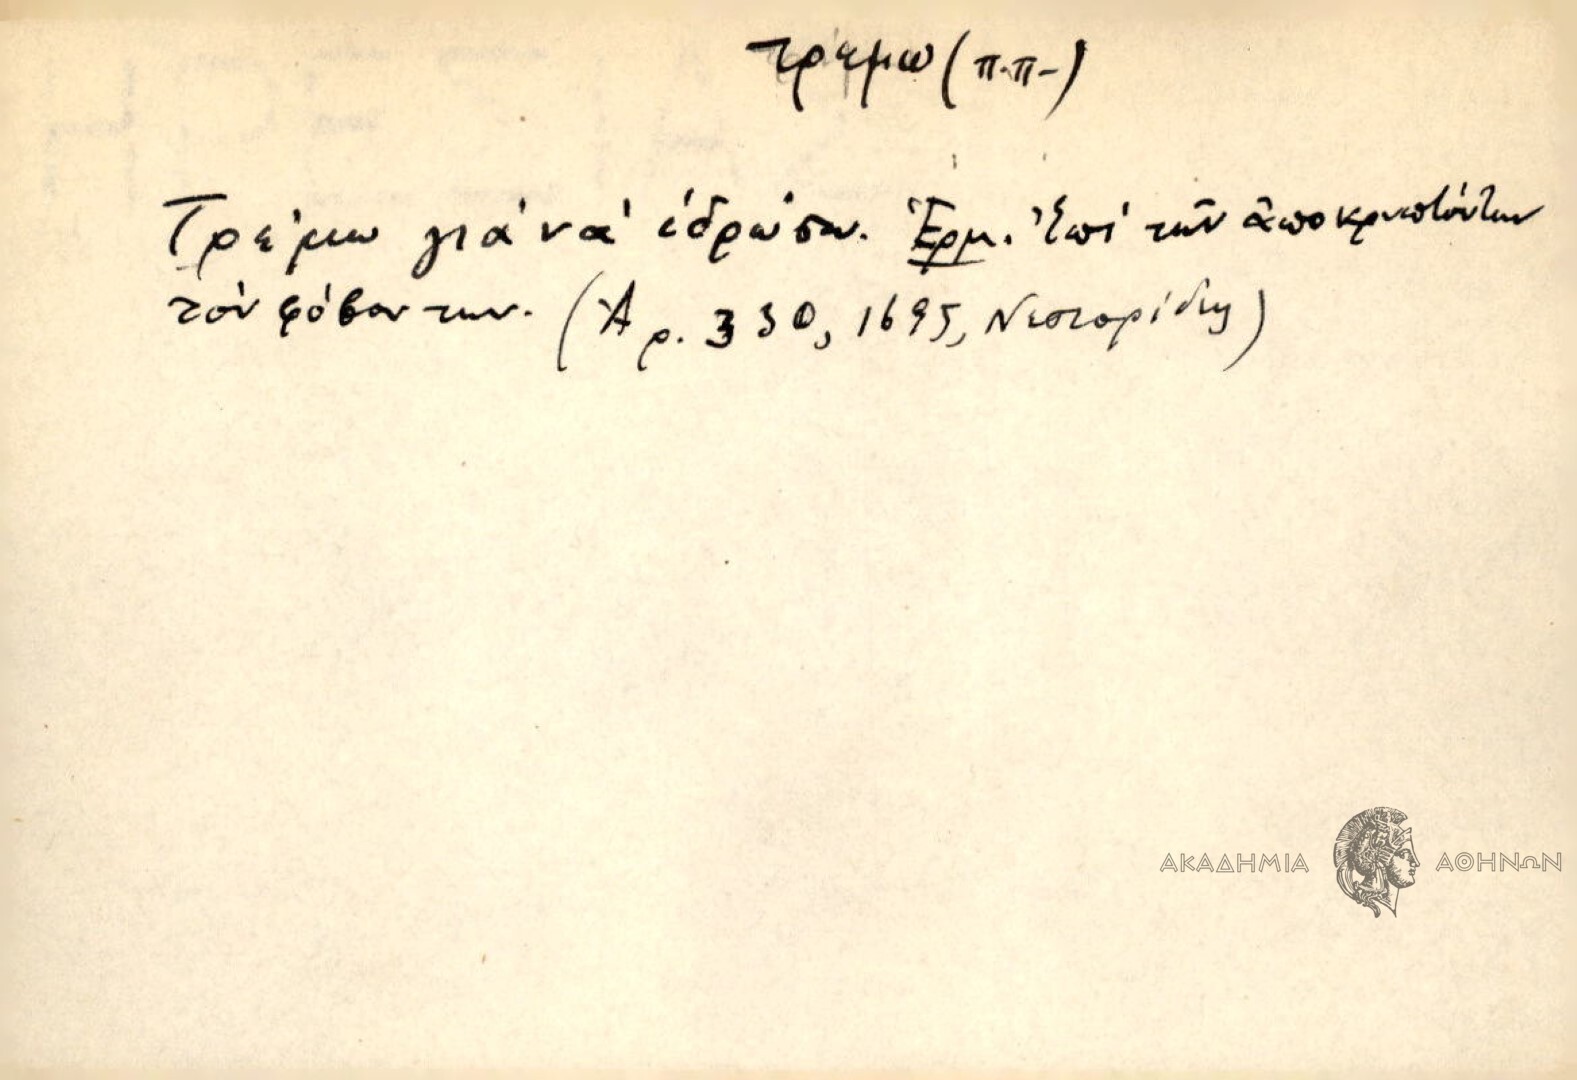 τρέμω (π.π-)
Τρέμω γιά νά ἱδρώσω. Ἑρμ. Ἐπί τῶν ἀποκρυπτόντων
τόν φόβον των. (Ἀρ. 330, 1695, Νεστορίδης)
ΑΚΑΔΗΜΙΑ ΑΘΗΝΩΝ